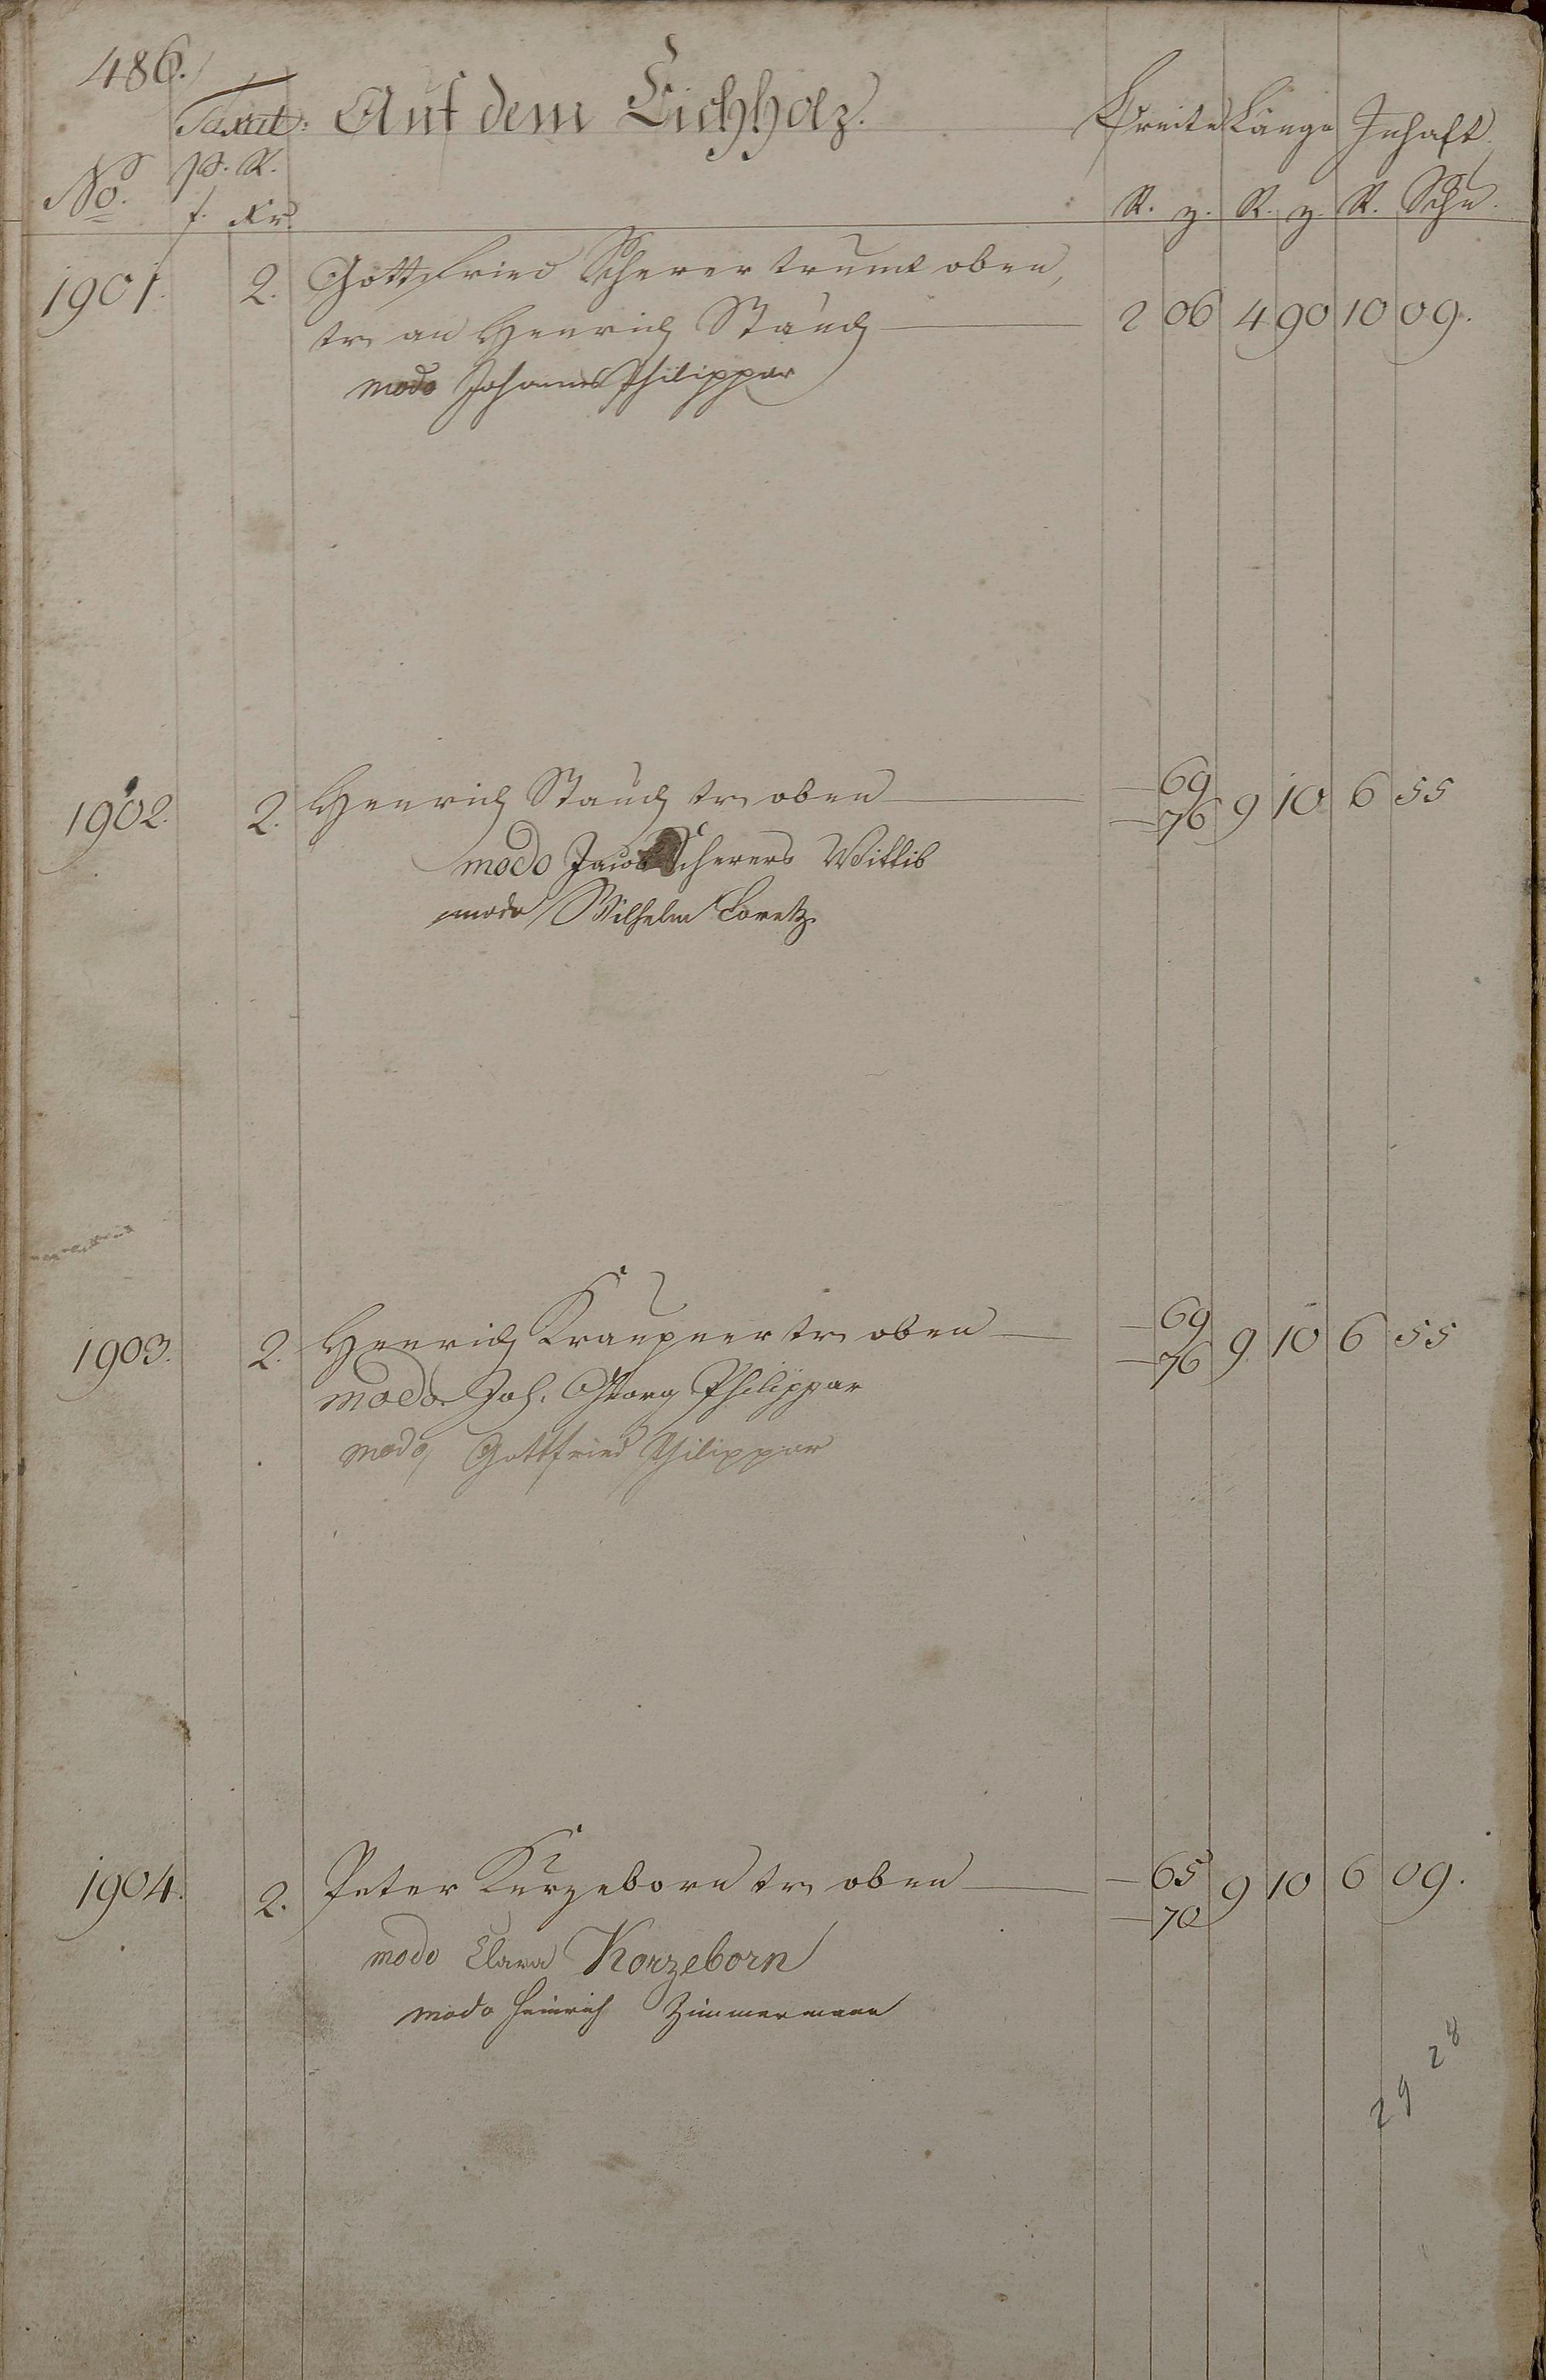 486.
Taxat: Auf dem Eichholz. Breite Länge Inhalt
No. p. R.
f. Xr. R. z. R. z. R. Schu.
1901. 2. Gottfried Scherer trumt oben,
tr. an Henrich Stauch 2 06 4 90 10 09.
modo Johannes Philippar
1902. 2. Henrich Stauch tr. oben — 69 9 10 6 55
— 76
modo Jacob Scherers Wittib
modo Wilhelm Loretz
1903. 2. Henrich Kraupner tr. oben — 69 9 10 6 55
— 76
modo Joh. Georg Philippar
modo Gottfried Philippar
1904. 2. Peter Kurzeborn tr. oben — 65 9 10 6 09.
— 70
modo Clara Korzeborn
modo Heinrich Zimmermann
28
29